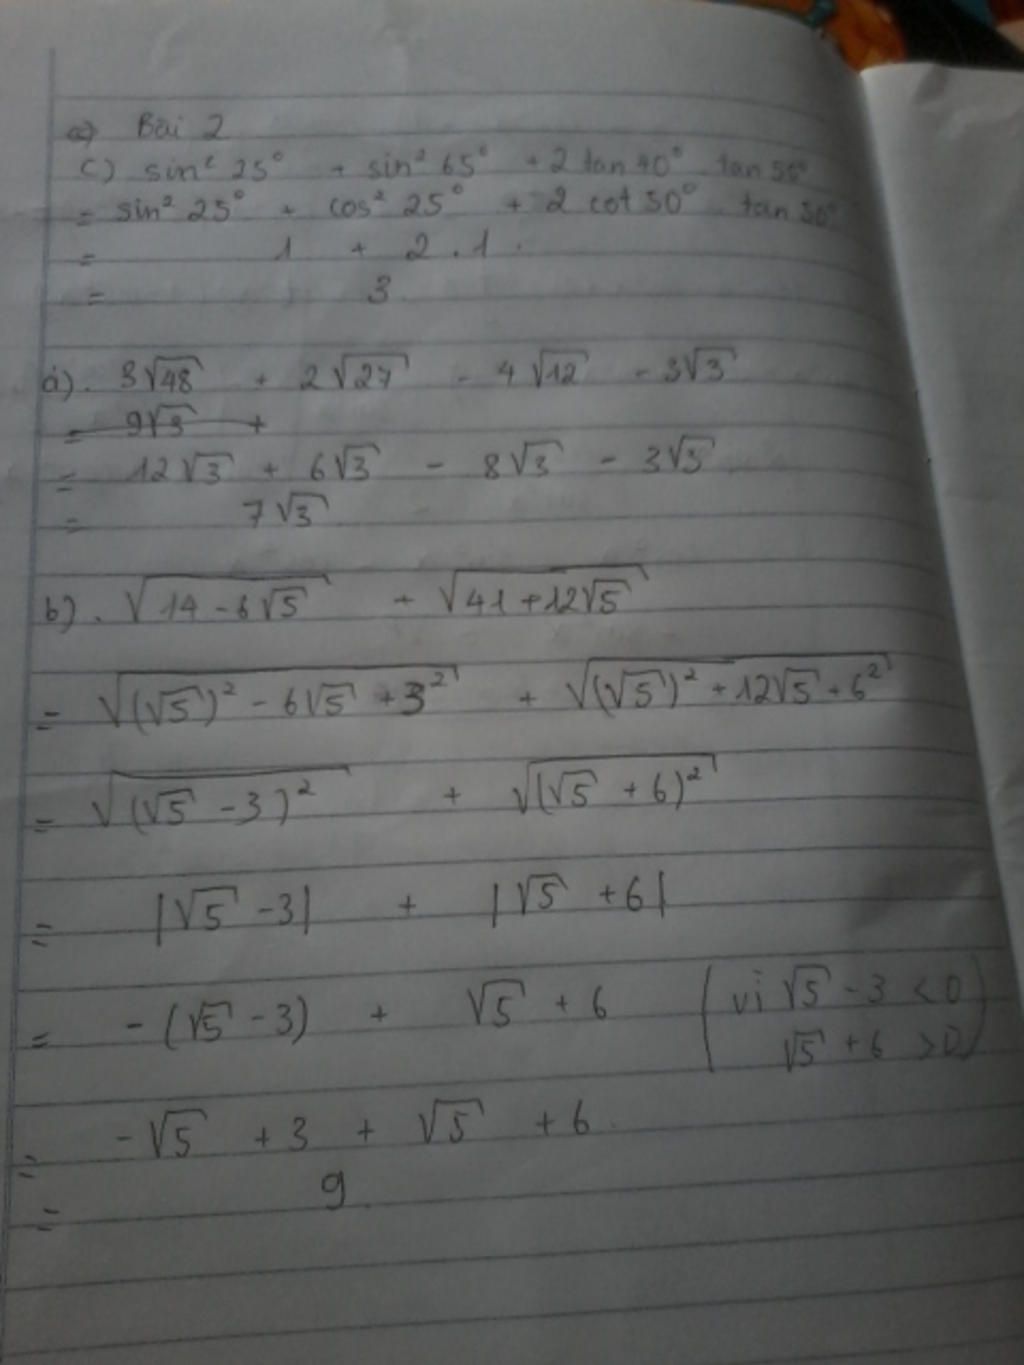 a) Bài 2
c) sin² 25° + sin² 65° + 2 tan 40° . tan 50°
= sin² 25° + cos² 25° + 2 cot 50° . tan 50°
= 1 + 2 . 1 .
= 3
a) . 3√48 + 2√27 - 4√12 - 3√3
= 9√3 +
= 12√3 + 6√3 - 8√3 - 3√3
= 7√3
b) . √(14 - 6√5) + √(41 + 12√5)
= √((√5)² - 6√5 + 3²) + √((√5)² + 12√5 + 6²)
= √((√5 - 3)²) + √((√5 + 6)²)
= |√5 - 3| + |√5 + 6|
= - (√5 - 3) + √5 + 6 (vì √5 - 3 < 0
√5 + 6 > 0)
= - √5 + 3 + √5 + 6
= 9